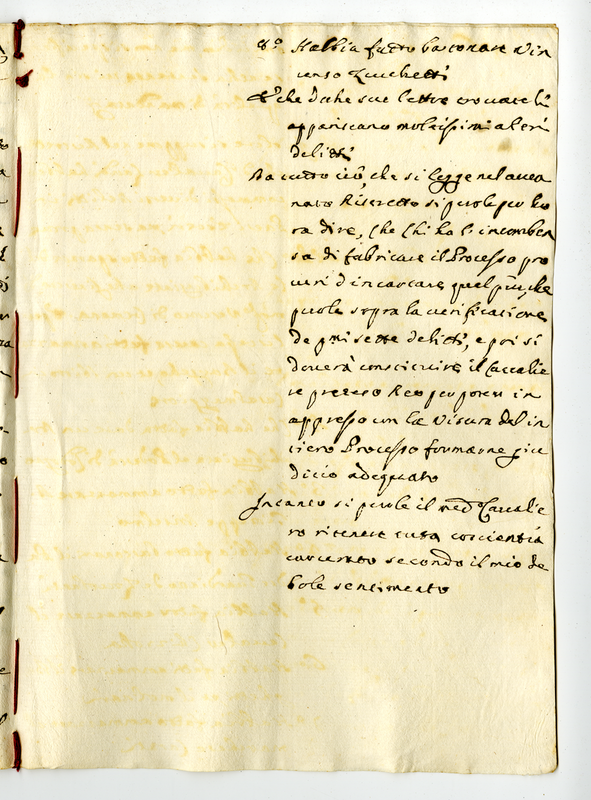 8.º Habbia fatto bastonare Vin
cenzo Zucchetti
E che dalle sue lettere trovate li
appariscano moltissimi altri
delitti
Da tutto ciò che si legge nel ante
nato Ristretto si puole per ho
ra dire, che chi ha l'incomben
sa di fabricare il Processo pro
curi d'incaricare quel più, che
puole sopra la verificatione
de p̃mi sette delitti, e poi si
doverà constituire il Cavalie
re preteso Reo per poter in
appresso con la visura del in
tiero Processo formarne giu
dicio adequato
Intanto si puole il med.º Cavalie
ro ritenere tuta coscientia
carcerato secondo il mio de
bole sentimento